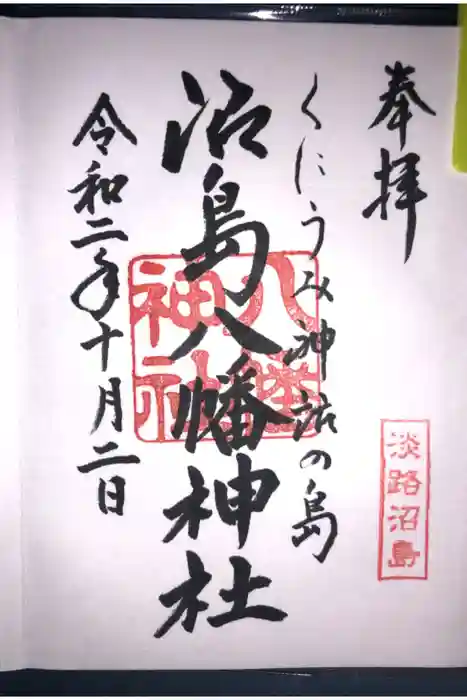 奉拝
淡路沼島
くにうみ神話の島
沼島八幡神社
八幡神社
令和二年十月二日